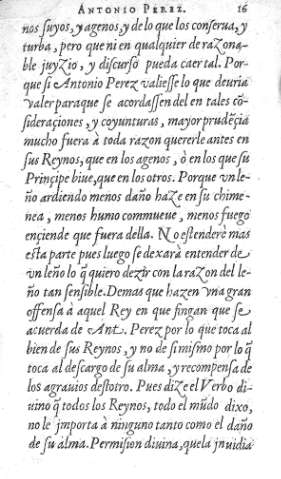 ANTONIO PEREZ. 16
nos suyos, y agenos, y de lo que los conserua, y
turba, pero que ni en qualquier de razona-
ble juyzio, y discurso pueda caer tal. Por-
que si Antonio Perez valiesse lo que deuria
valer paraque se acordassen del en tales cõ-
sideraciones, y coyunturas, mayor prudẽçia
mucho fuera à toda razon quererle antes en
sus Reynos, que en los agenos, ò en los que su
Prinçipe biue, que en los otros. Porque vn le-
ño ardiendo menos daño haze en su chime-
nea, menos humo commueue, menos fuego
ençiende que fuera della. No estenderè mas
esta parte pues luego se dexarà entender de
vn leño lo q̃ quiero dezir con la razon del le-
ño tan sensible. Demas que hazen vna gran
offensa à aquel Rey en que fingan que se
acuerda de Ant. Perez por lo que toca al
bien de sus Reynos, y no de si mismo por lo q̃
toca al descargo de su alma, y recompensa de
los agrauios destotro. Pues dize el Verbo di-
uino q̃ todos los Reynos, todo el mũdo dixo,
no le importa à ninguno tanto como el daño
de su alma. Permision diuina, que la jnuidia